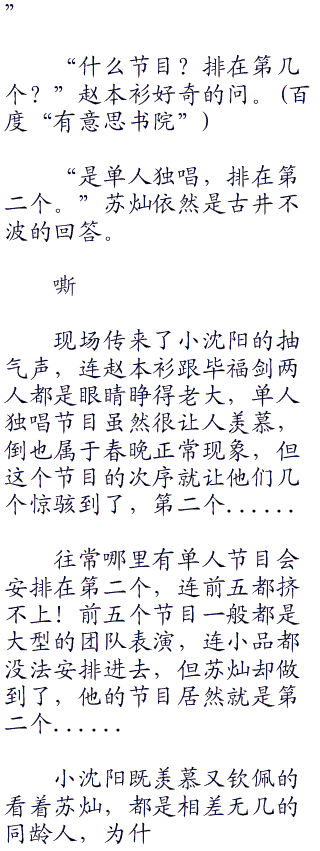 ”
“什么节目？排在第几
个？”赵本衫好奇的问。(百
度“有意思书院”)
“是单人独唱，排在第
二个。”苏灿依然是古井不
波的回答。
嘶
现场传来了小沈阳的抽
气声，连赵本衫跟毕福剑两
人都是眼睛睁得老大，单人
独唱节目虽然很让人羡慕，
倒也属于春晚正常现象，但
这个节目的次序就让他们几
个惊骇到了，第二个......
往常哪里有单人节目会
安排在第二个，连前五都挤
不上！前五个节目一般都是
大型的团队表演，连小品都
没法安排进去，但苏灿却做
到了，他的节目居然就是第
二个......
小沈阳既羡慕又钦佩的
看着苏灿，都是相差无几的
同龄人，为什